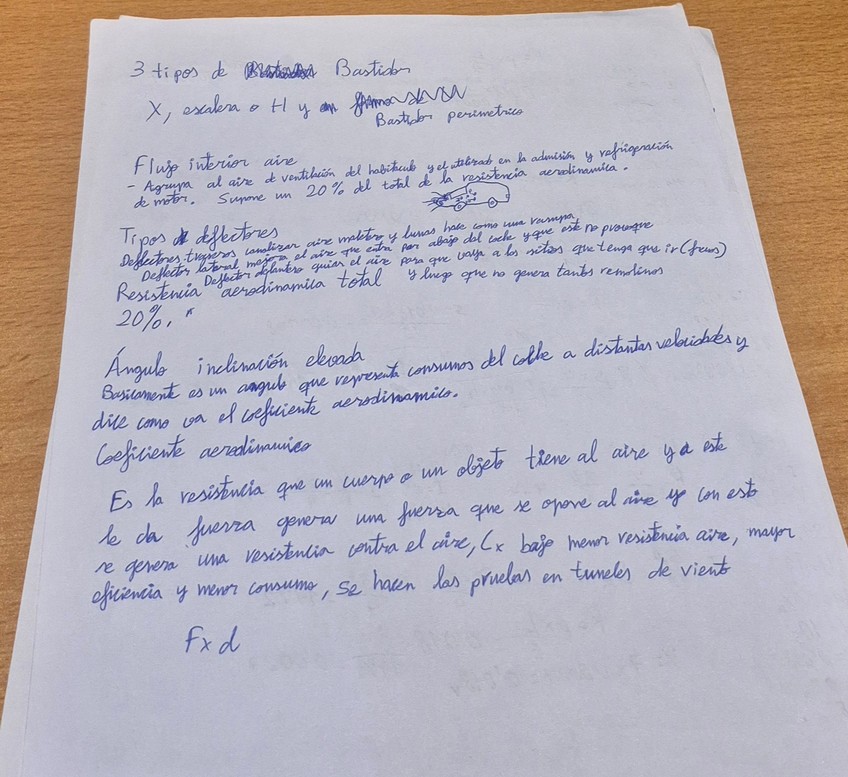 3 tipos de Bastidor
X, escalera o H y
Bastidor perimetrico
Flujo interior aire
- Agrupa al aire de ventilación del habitaculo y el utilizado en la admisión y refrigeración
de motor. Supone un 20% del total de la resistencia aerodinamica.
Tipos deflectores
Deflectores traseros canalizar aire maletero y lunas hace como una rampa
Deflector lateral mejora el aire que entra por abajo del coche y que este no provoque
Deflector delantero guiar el aire para que vaya a los sitios que tenga que ir (frenos)
Resistencia aerodinamica total y luego que no genera tantos remolinos
20%.
Ángulo inclinación elevada
Basicamente es un angulo que representa consumos del coche a distantas velocidades y
dice como va el coeficiente aerodinamico.
Coeficiente aerodinamico
Es la resistencia que un cuerpo o un objeto tiene al aire y a este
le da fuerza genera una fuerza que se opone al aire y con esto
se genera una resistencia contra el aire, Cx bajo menor resistencia aire, mayor
eficiencia y menor consumo, se hacen las pruebas en tuneles de viento
Fxd